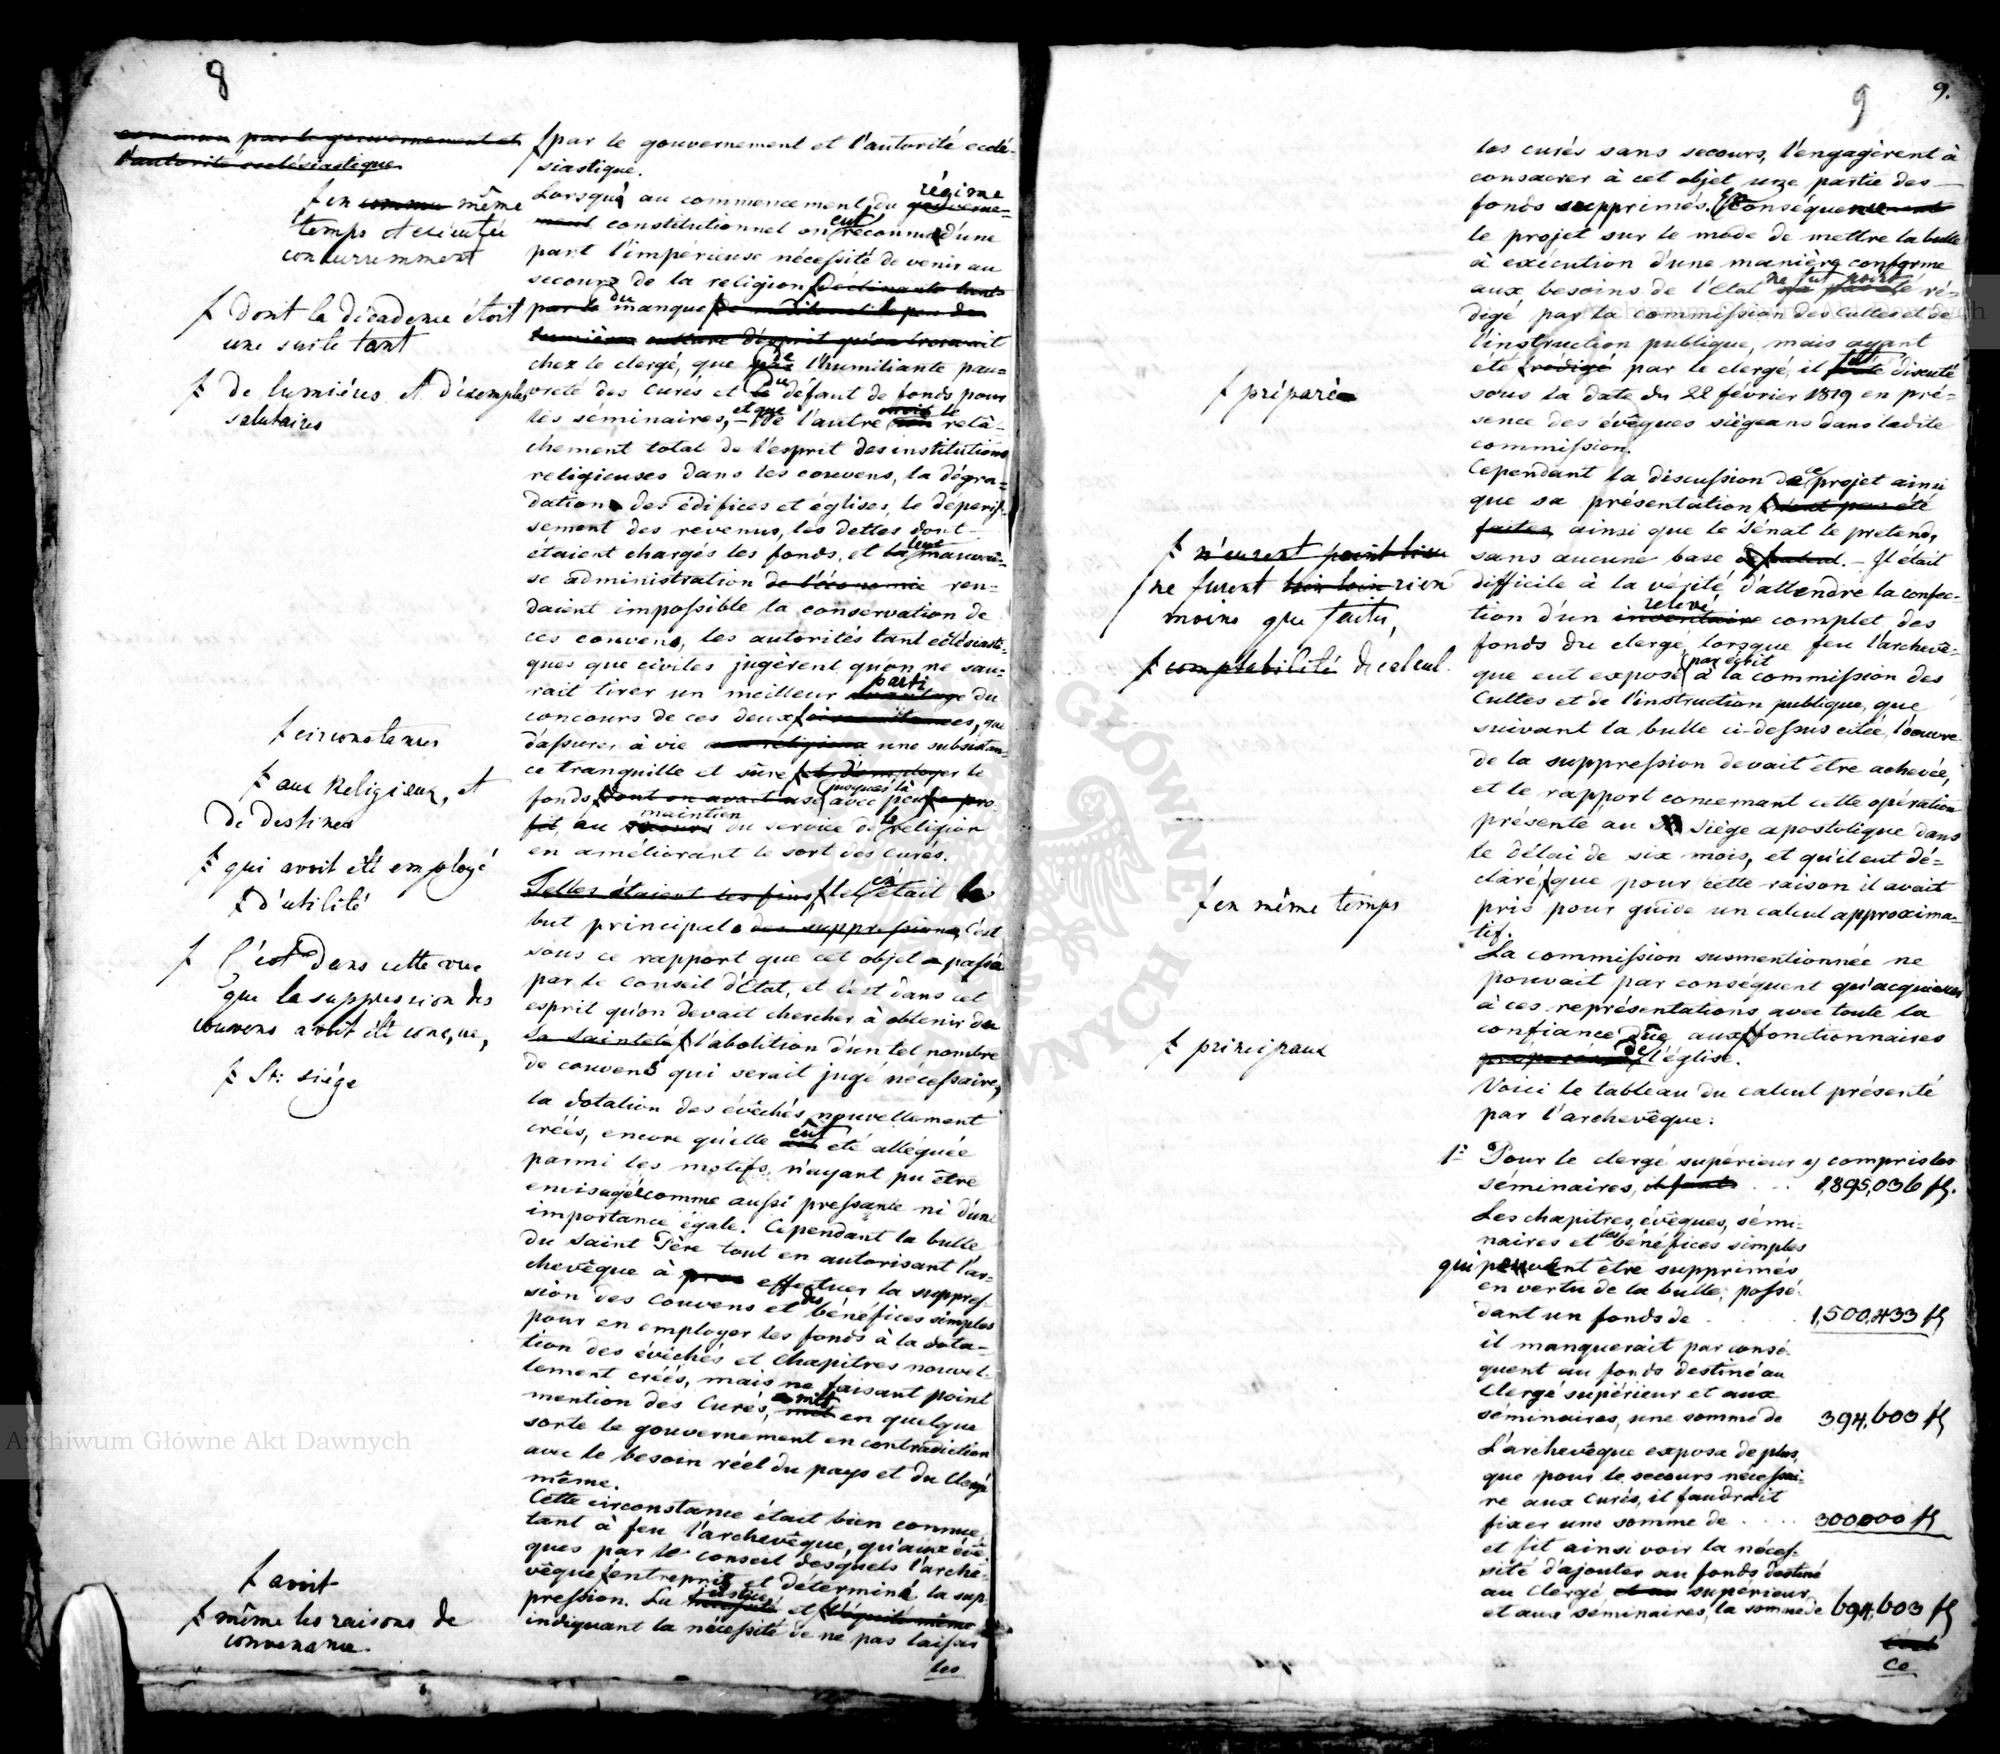 8
commun par le gouvernement et
l'autorité ecclésiastique
ƒ en commun même
temps et exécutée
concurremment
ƒ dont la décadence étoit
une suite tant
ƒ de lumières et d'exemples
salutaires
ƒ circonstances
ƒ aux Religieux, et
de destiner
ƒ qui avoit été employé
ƒ d'utilité
ƒ C'est dans cette vue
que la suppression des
couvens avoit été conçue,
ƒ St: siége
ƒ avoit
ƒ même les raisons de
convenance.
ƒ par le gouvernement et l'autorité ecclé-
siastique.
régime
Lorsqu' au commencement du gouverne-
ment constitutionnel on eut reconnu d'une
part l'impérieuse nécessité de venir au
secours de la religion déclinante tant
par le du manque
culture d'esprit qu'on trouvait
chez le clergé, que de l'humiliante pau-
vreté des curés et du défaut de fonds pour
les séminaires, et que de l'autre le relâ-
chement total de l'esprit des institutions
religieuses dans les couvens, la dégra-
dation des édifices et églises, le dépéris-
sement des revenus, les dettes dont
étaient chargés les fonds, et la leur mauvai-
se administration de l'économie ren-
daient impossible la conservation de
ces couvens, les autorités tant ecclésiasti-
ques que civiles jugèrent qu'on ne sau-
rait tirer un meilleur avantage parti du
concours de ces deux circonstances, que
d'assurer à vie aux religieux une subsistan-
ce tranquille et sûre et d'employer le
fonds dont on avait usé jusques là avec peu de pro-
fit, au secours maintien du service de la religion
en améliorant le sort des curés.
Telles étaient les fins tel en était le
but principal des suppressions, c'est
sous ce rapport que cet objet a passé
par le conseil d'État, et c'est dans cet
esprit qu'on devait chercher à obtenir du
Sa Sainteté l'abolition d'un tel nombre
de couvens qui serait jugé nécessaire,
la dotation des évêchés nouvellement
créés, encore qu'elle eût été alléguée
parmi les motifs, n'ayant pu être
envisagée comme aussi pressante ni d'une
importance égale. Cependant la bulle
du Saint Père tout en autorisant l'ar-
chevêque à effectuer la suppres-
sion des couvens et des bénéfices simples
pour en employer les fonds à la dota-
tion des évêchés et chapitres nouvel-
lement créés, mais ne faisant point
mention des Curés, a mis met en quelque
sorte le gouvernement en contradiction
avec le besoin réel du pays et du Clergé
même.
Cette circonstance était bien connue,
tant à feu l'archevêque, qu'aux évê-
ques par le conseil desquels l'arche-
vêque entreprit et déterminé la sup-
pression. La nécessité justice et l'équité même
indiquant la nécessité de ne pas laisser
les
9
9.
les curés sans secours, l'engagèrent à
consacrer à cet objet une partie des
fonds supprimés. En conséquence
le projet sur le mode de mettre la bulle
à exécution d'une manière conforme
aux besoins de l'État ne fut point ré-
digé par la commission des cultes et de
l'instruction publique, mais ayant
été rédigé par le clergé, il fut discuté
sous la date du 22 février 1819 en pré-
sence des évêques siégeans dans ladite
commission.
Cependant la discussion de ce projet ainsi
que sa présentation n'ont pas été
faites, ainsi que le Sénat le prétend,
sans aucune base de calcul. – Il était
difficile à la vérité d'attendre la confec-
tion d'un inventaire relevé complet des
fonds du clergé, lorsque feu l'archevê-
que eut exposé par écrit à la commission des
Cultes et de l'instruction publique, que
suivant la bulle ci-dessus citée, l'oeuvre
de la suppression devait être achevée,
et le rapport concernant cette opération
présenté au St Siège apostolique dans
le délai de six mois, et qu'il eut dé-
claré, que pour cette raison il avait
pris pour guide un calcul approxima-
tif.
La commission susmentionnée ne
pouvait par conséquent qu'acquiescer
à ces représentations avec toute la
confiance due aux fonctionnaires
de l'église.
Voici le tableau du calcul présenté
par l'archevêque:
1° Pour le clergé supérieur y compris les
séminaires, il faut . . . 1,895,036 fl.
Les chapitres, évêques, sémi-
naires et les bénéfices simples
qui peuvent être supprimés
en vertu de la bulle, possé-
dant un fonds de . . . 1,500,433 fl
il manquerait par consé-
quent au fonds destiné au
Clergé supérieur et aux
séminaires, une somme de 394,603 fl
L'archevêque exposa de plus,
que pour le secours nécessai-
re aux curés, il faudrait
fixer une somme de . . . . 300,000 fl
et fit ainsi voir la néces-
sité d'ajouter au fonds destiné
au Clergé et au supérieur,
et aux séminaires, la somme de 694,603 fl
C'est
ce
ƒ préparé
ƒ n'eurent point lieu
ne furent loin rien
moins que faites,
ƒ comptabilité de calcul.
ƒ en même temps
ƒ principaux
Archiwum Główne Akt Dawnych
Archiwum Główne Akt Dawnych